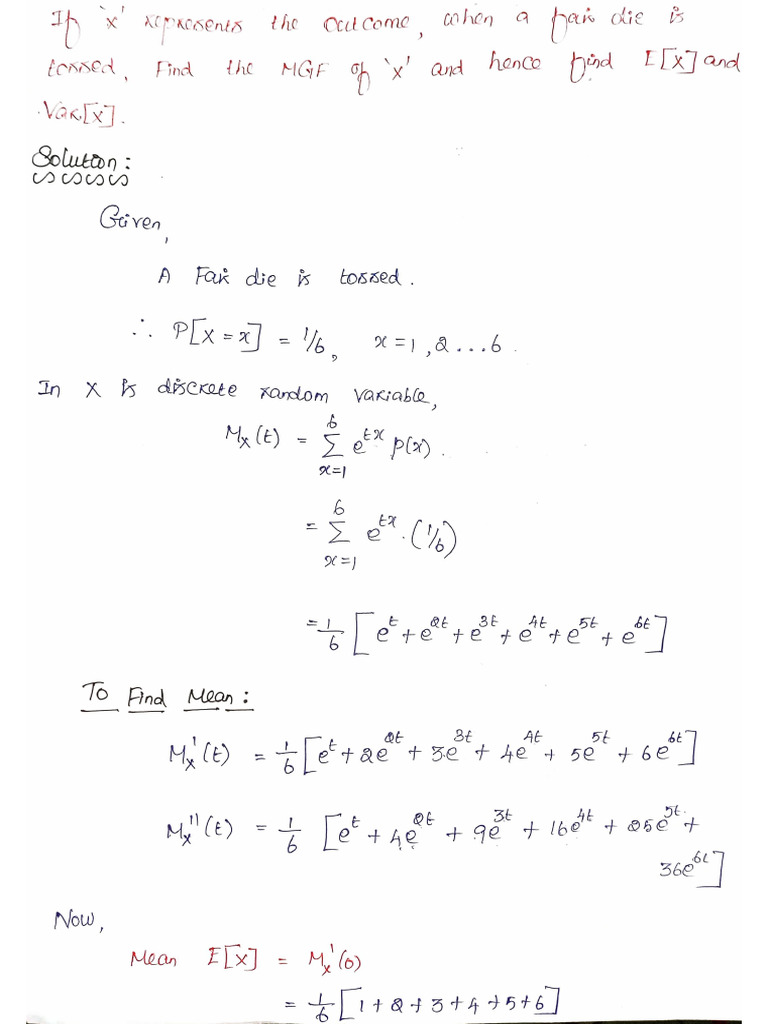 If 'x' represents the outcome, when a fair die is
tossed, Find the MGF of 'x' and hence find E[x] and
Var[x].
Solution:
Given,
A Fair die is tossed.
∴ P[X = x] = 1/6, x = 1, 2 ... 6.
In X is discrete random variable,
M_X(t) = Σ_{x=1}^{6} e^{tx} p(x).
= Σ_{x=1}^{6} e^{tx} . (1/6)
= 1/6 [e^t + e^{2t} + e^{3t} + e^{4t} + e^{5t} + e^{6t}]
To Find Mean:
M_X'(t) = 1/6 [e^t + 2e^{2t} + 3e^{3t} + 4e^{4t} + 5e^{5t} + 6e^{6t}]
M_X''(t) = 1/6 [e^t + 4e^{2t} + 9e^{3t} + 16e^{4t} + 25e^{5t} +
36e^{6t}]
Now,
Mean E[X] = M_X'(0)
= 1/6 [1 + 2 + 3 + 4 + 5 + 6]